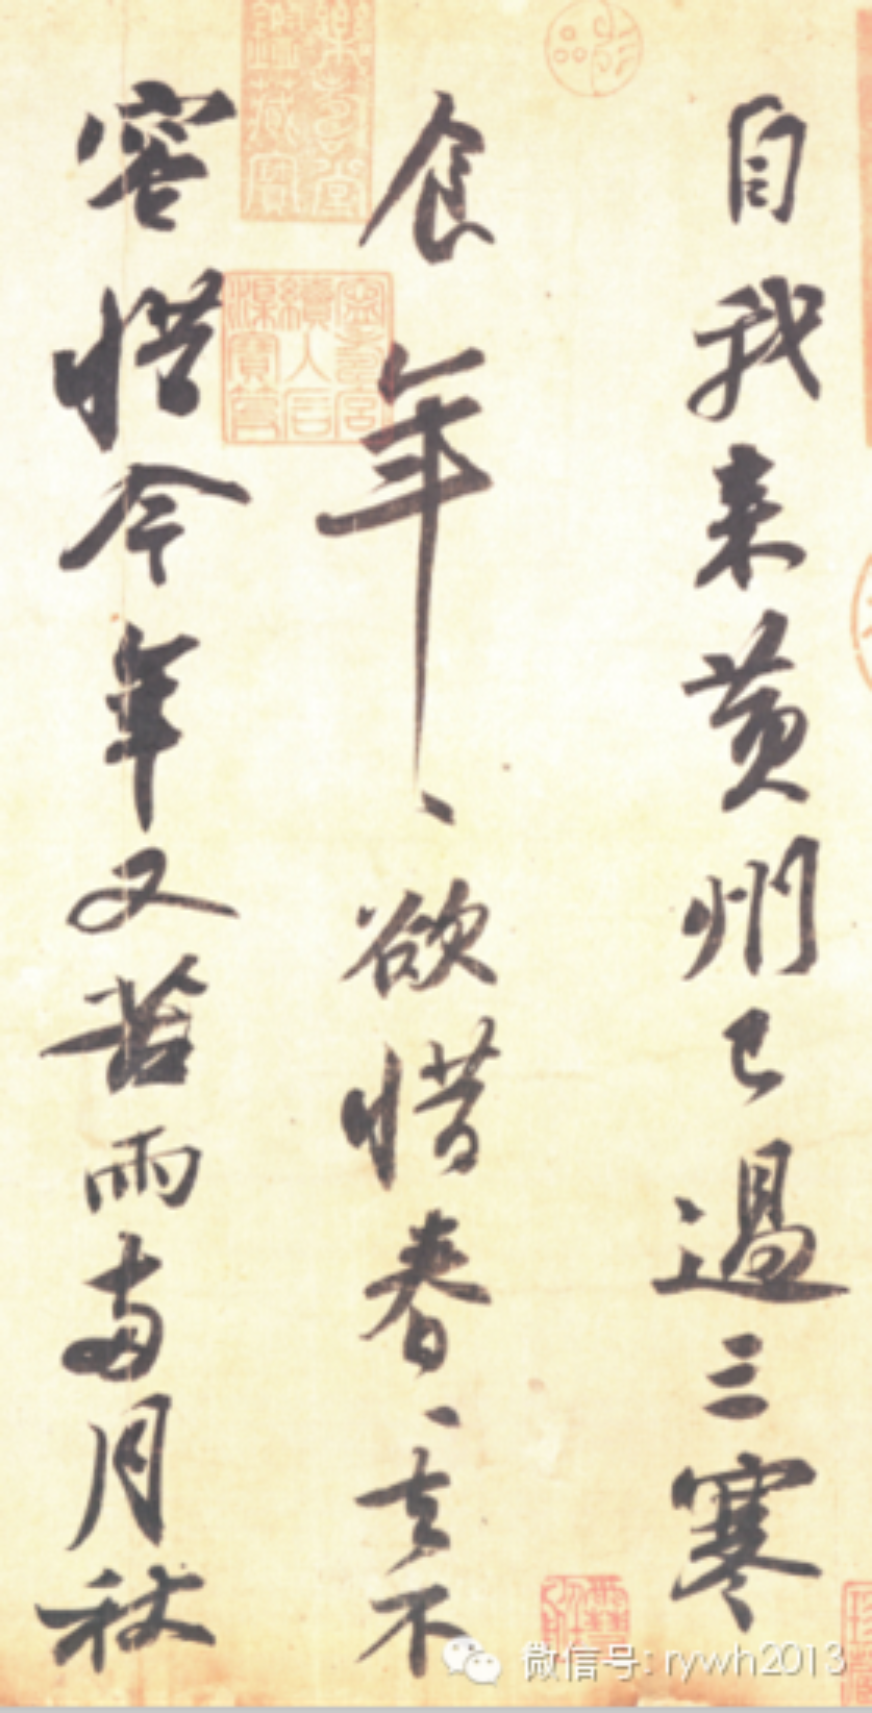 自我来黄州已過三寒
食年、欲惜春、去不
容惜今年又苦雨兩月秋
微信号: rywh2013